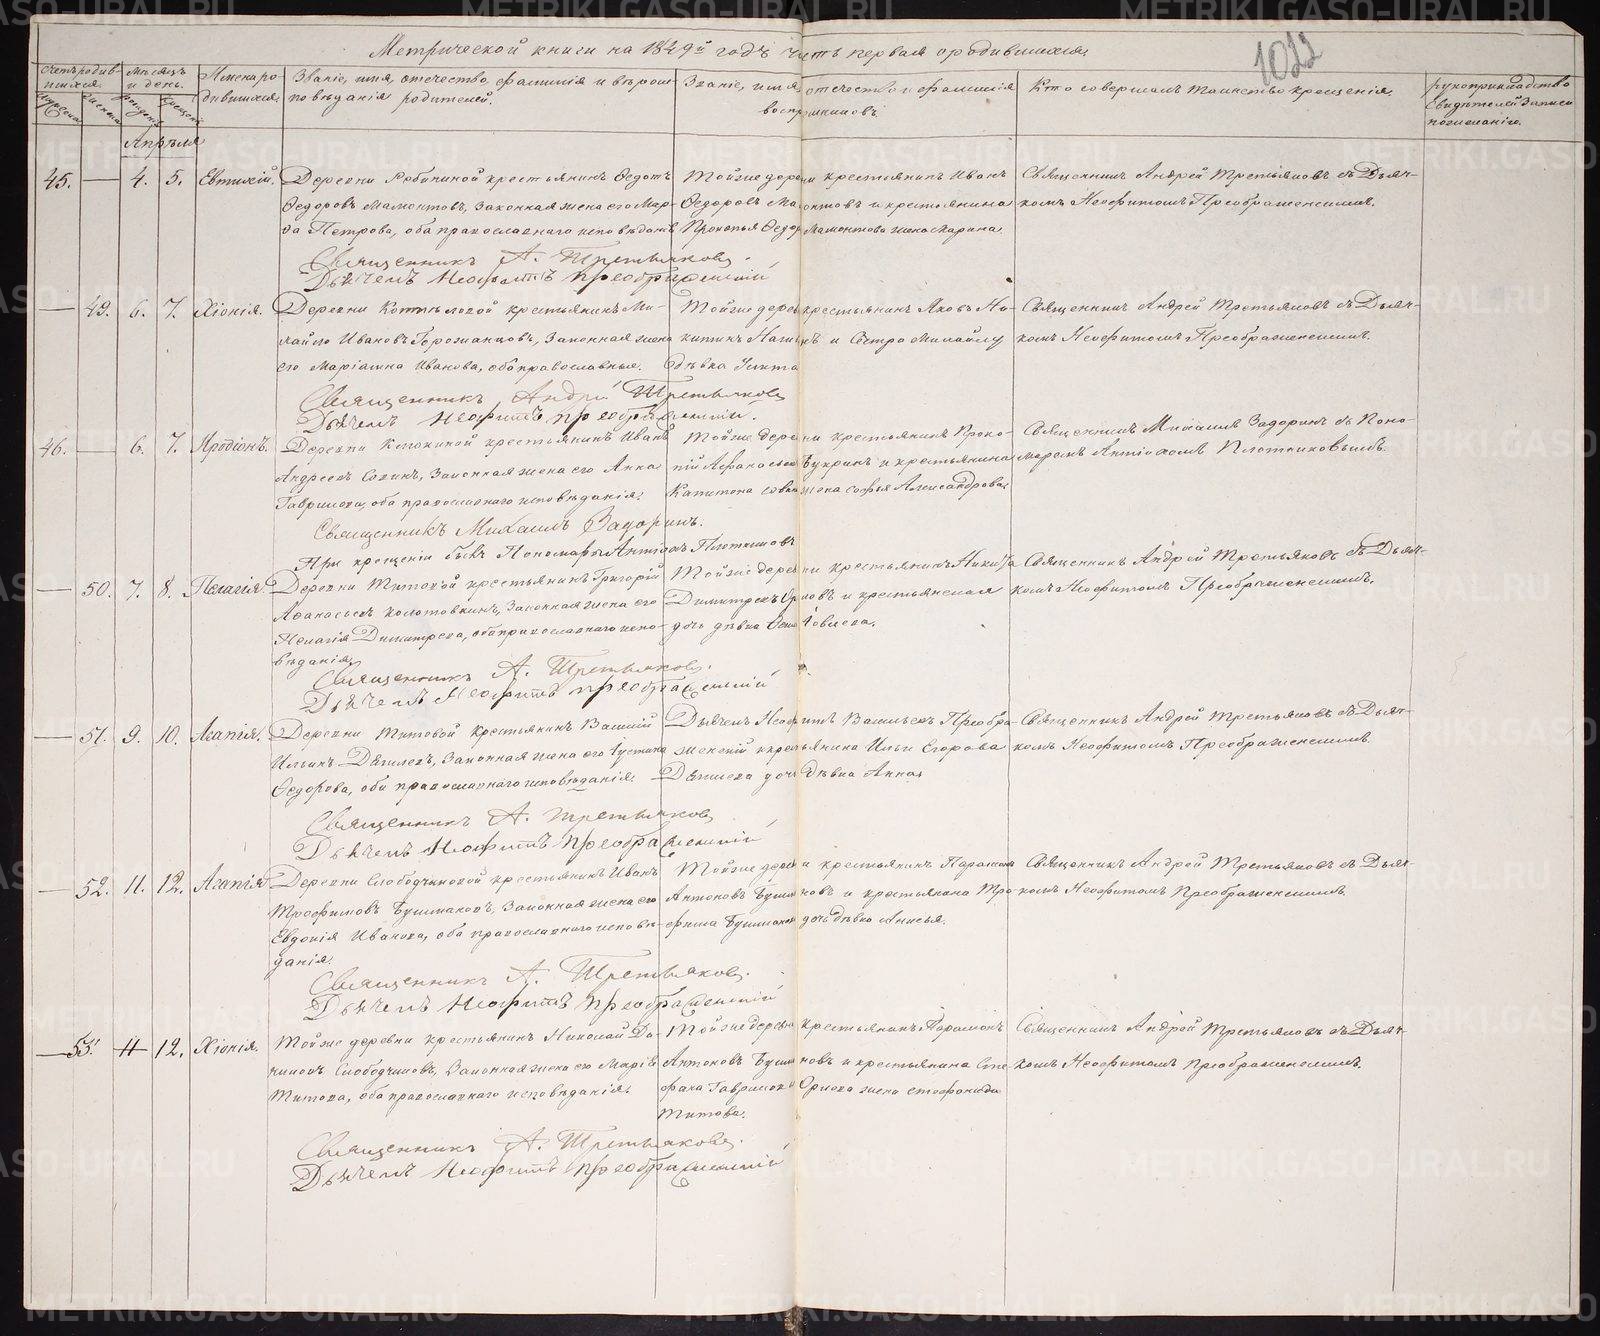 Метрической книги на 1849й годъ часть первая о родившихся
1022
Счетъ родив-
шихся.
Мѣсяцъ
и день.
Имена ро-
дившихся.
Званіе, имя, отечество, фамилія и вѣрои-
сповѣданія родителей.
Званіе, имя, отечество и фамилія
воспріемниковъ.
Кто совершалъ таинство крещенія.
рукоприкладство
свидѣтелей записи
по желанію.
Апрѣля
45. — 4. 5. Евтихій.
Деревни крестьянинъ Ѳедотъ
Ѳедоровъ Мамонтовъ, Законная жена его Мар-
ѳа Петрова, оба православнаго исповѣданія
Тойже деревни крестьянинъ Иванъ
Ѳедоровъ Мамонтовъ и крестьянина
Прокопья Ѳедор. Мамонтова жена Марина.
Священникъ Андрей Третьяковъ съ Дьяч-
комъ Неофитомъ Преображенскимъ.
Священникъ А. Третьяковъ.
Дьячекъ Неофитъ Преображенскій
— 49. 6. 7. Хіонія.
Деревни крестьянинъ Ми-
хайло Ивановъ Горожанцовъ, Законная жена
его Маріамна Иванова, оба православные.
Тойже деревни крестьянинъ Яковъ Ни-
китинъ и Сестра Михайлу
дѣвка
Священникъ Андрей Третьяковъ съ Дьяч-
комъ Неофитомъ Преображенскимъ.
Священникъ Андрей Третьяковъ
Дьячекъ Неофитъ Преображенскій.
46. — 6. 7. Иродіонъ.
Деревни крестьянинъ Иванъ
Андреевъ Законная жена его Анна
Гаврилова, оба православнаго исповѣданія.
Тойже деревни крестьянинъ Проко-
пій Аѳанасьевъ Букринъ и крестьянина
Капитона жена Софья Александрова.
Священникъ Михаилъ Задоринъ съ Поно-
маремъ Антіохомъ Плотниковымъ.
Священникъ Михаилъ Задоринъ.
При крещеніи былъ Пономарь Антіохъ Плотниковъ
— 50. 7. 8. Пелагія.
Деревни Титовой крестьянинъ Григорій
Аѳанасьевъ Колотовкинъ, Законная жена его
Пелагія Димитрева, оба православнаго испо-
вѣданія.
Тойже деревни крестьянинъ Никита
Димитревъ Орловъ и крестьянская
дочь дѣвка Іовлева.
Священникъ Андрей Третьяковъ съ Дьяч-
комъ Неофитомъ Преображенскимъ.
Священникъ А. Третьяковъ.
Дьячекъ Неофитъ Преображенскій
— 51. 9. 10. Агапія.
Деревни Титовой крестьянинъ Василій
Ильинъ Дѣгилевъ, Законная жена его Іустина
Ѳедорова, оба православнаго исповѣданія.
Дьячекъ Неофитъ Васильевъ Преобра-
женскій и крестьянина Ильи Егорова
Дѣгилева дочь дѣвка Анна.
Священникъ Андрей Третьяковъ съ Дьяч-
комъ Неофитомъ Преображенскимъ.
Священникъ А. Третьяковъ
Дьячекъ Неофитъ Преображенскій
— 52. 11. 12. Агапія.
Деревни Слободчиковой крестьянинъ Иванъ
Трофимовъ Бушмаковъ, Законная жена его
Евдокія Иванова, оба православнаго исповѣ-
данія.
Тойже деревни крестьянинъ Парамонъ
Антоновъ и крестьянина Тро-
фима дочь дѣвка Анисья.
Священникъ Андрей Третьяковъ съ Дьяч-
комъ Неофитомъ Преображенскимъ
Священникъ А. Третьяковъ.
Дьячекъ Неофитъ Преображенскій
— 53. 11 12. Хіонія.
Тойже деревни крестьянинъ Николай Да-
ниловъ Слободчиковъ, Законная жена его Марія
Титова, оба православнаго исповѣданія.
Тойже деревни крестьянинъ Парамонъ
Антоновъ и крестьянина Сте-
фана Гаврилова Орлова жена Стефанида
Титова.
Священникъ Андрей Третьяковъ съ Дьяч-
комъ Неофитомъ Преображенскимъ.
Священникъ А. Третьяковъ.
Дьячекъ Неофитъ Преображенскій
METRIKI.GASO-URAL.RU